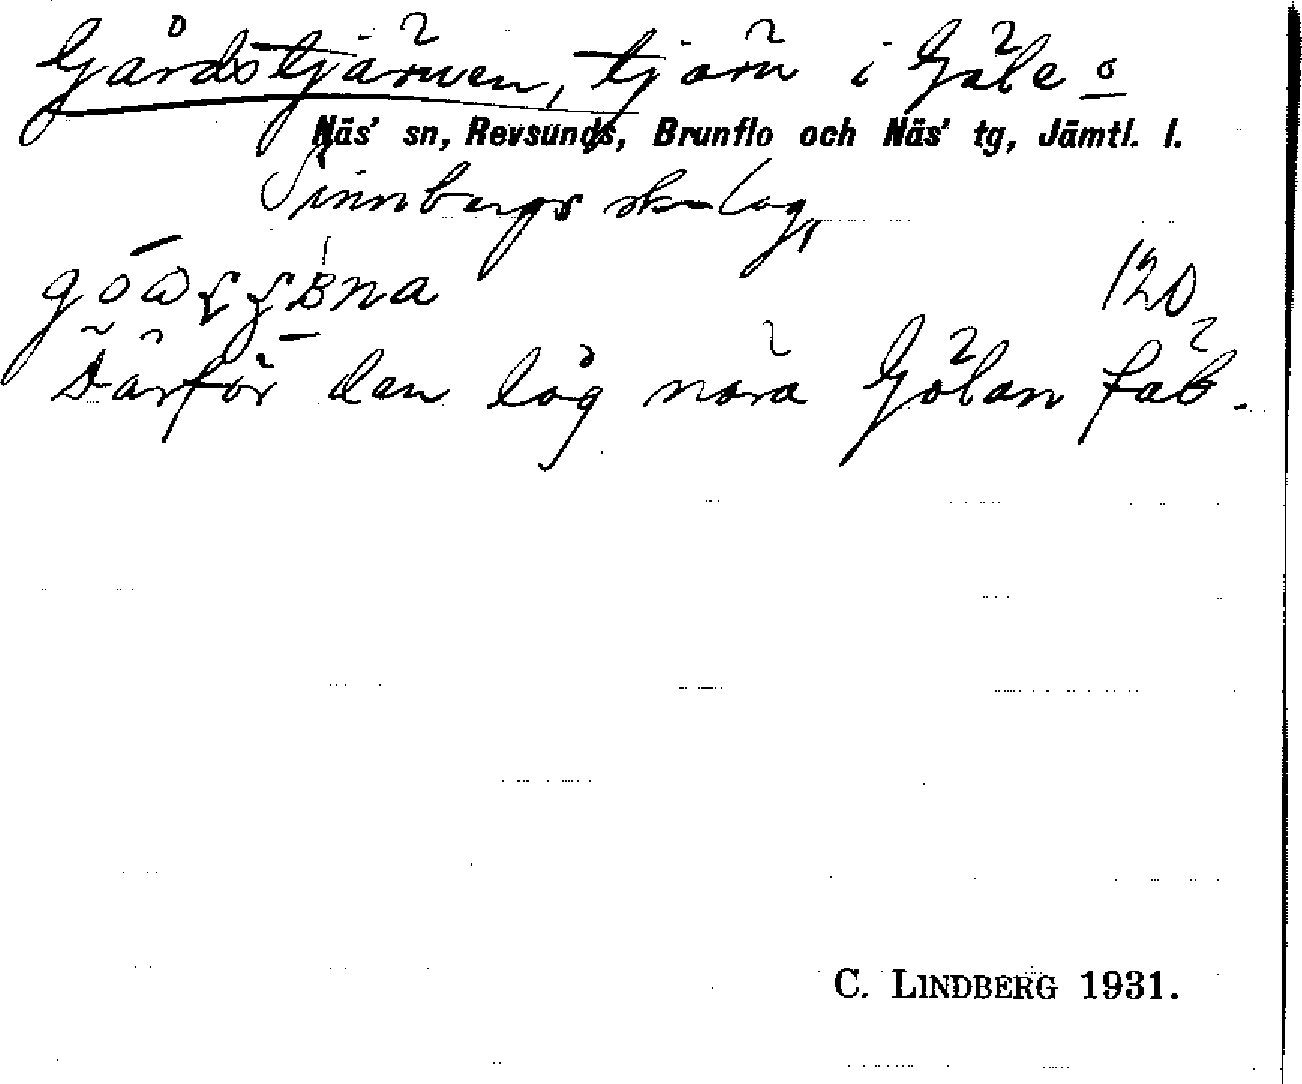 Gårdstjärnen, tjärn i Gåle o
Näs' sn, Revsunds, Brunflo och Näs' tg, Jämtl. l.
Sinnbergs skolag,
120
Därför den låg nära Gölan fäb.
C. LINDBERG 1931.